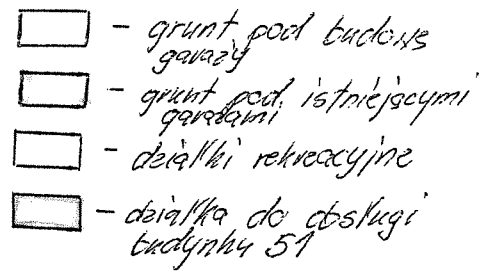 - grunt pod budowę
garaży
- grunt pod istniejącymi
garażami
- działki rekreacyjne
- działka do obsługi
budynku 51